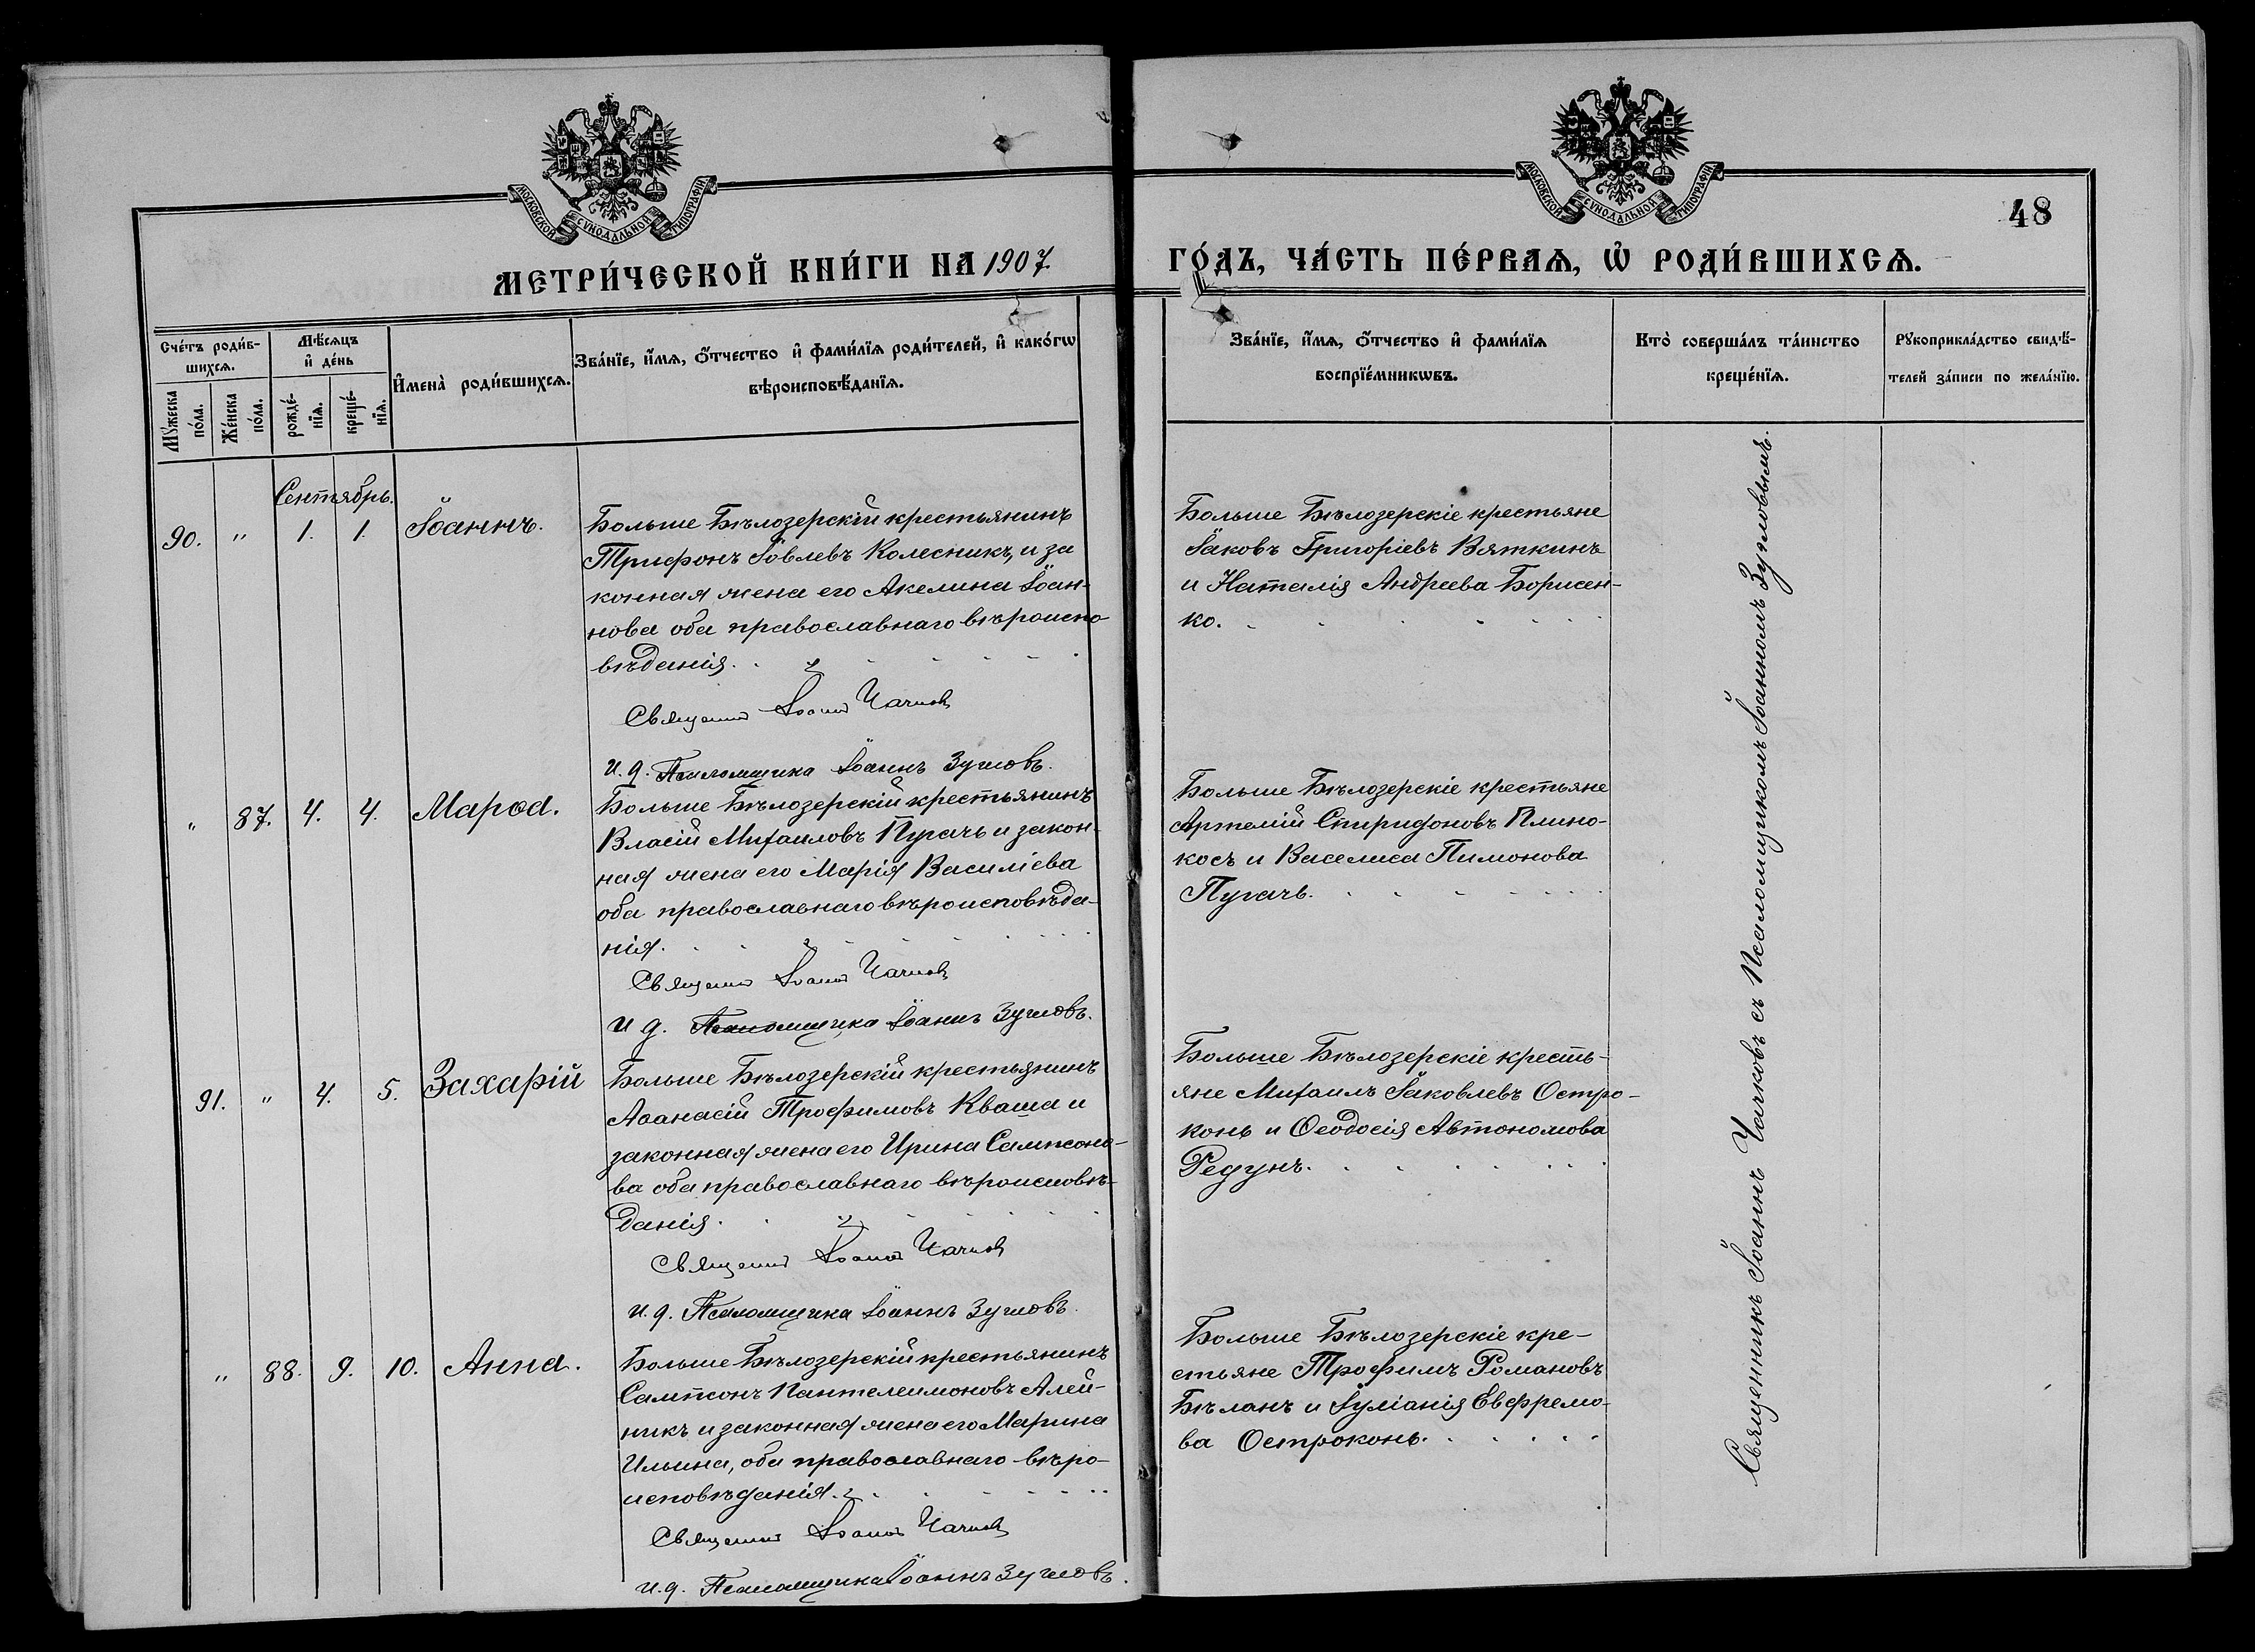 МОСКОВСКОЙ СѴНОДАЛЬНОЙ ТИПОГРАФІИ
МОСКОВСКОЙ СѴНОДАЛЬНОЙ ТИПОГРАФІИ
48
МЕТРИ́ЧЕСКОЙ КНИ́ГИ НА 1907
ГО́ДЪ, ЧА́СТЬ ПЕ́РВАѦ, Ѡ҆ РОДИ́ВШИХСѦ.
Сче́тъ роди́в-
шихсѧ.
Мѣ́сѧцъ
и҆ де́нь
Мꙋ́жеска
по́ла.
Же́нска
по́ла.
рожде́-
нїѧ.
креще́-
нїѧ.
И҆мена̀ роди́вшихсѧ.
Зва́нїе, и҆́мѧ, ѻ҆́тчество и҆ фами́лїѧ роди́телей, и҆ како́гѡ
вѣроисповѣ́данїѧ.
Зва́нїе, и҆́мѧ, ѻ҆́тчество и҆ фами́лїѧ
воспрїе́мникѡвъ.
Кто̀ соверша́лъ та́инство
креще́нїѧ.
Рꙋкоприкла́дство свидѣ́-
телей за́писи по жела́нїю.
Сентябрь.
90. " 1. 1. Іоаннъ.
Больше Бѣлозерскій крестьянинъ
Трифонъ Іовлевъ Колесникъ, и за
конная жена его Акелина Іоан-
нова оба православнаго вѣроиспо
вѣданія.
Священн Іоанн Чачков
и. д. Псаломщика Іоаннъ Зугловъ.
Больше Бѣлозерскіе крестьяне
Іаковъ Григоріевъ Вяткинъ
и Наталія Андреева Борисен-
ко.
" 87. 4. 4. Марѳа.
Больше Бѣлозерскій крестьянинъ
Власій Михаиловъ Пугачь и закон-
ная жена его Марія Василіева
оба православнаго вѣроисповѣда-
нія.
Священн Іоанн Чачков
и д. Псаломщика Іоаннъ Зугловъ.
Больше Бѣлозерскіе крестьяне
Артемій Спиридоновъ Плино-
косъ и Васелиса Пимонова
Пугачь.
91. " 4. 5. Захарій
Больше Бѣлозерскій крестьянинъ
Аѳанасій Трофимовъ Кваша и
законная жена его Ирина Сампсоно-
ва оба православнаго вѣроисповѣ-
данія.
Священн Іоанн Чачков
и. д. Псаломщика Іоаннъ Зугловъ.
Больше Бѣлозерскіе кресть-
яне Михаилъ Іаковлевъ Остро-
конь и Ѳеодосія Автономова
Редунъ.
" 88. 9. 10. Анна.
Больше Бѣлозерскій крестьянинъ
Сампсонъ Пантелеимоновъ Алей-
никъ и законная жена его Марина
Ильина, оба православнаго вѣро-
исповѣданія.
Священн Іоанн Чачков
и. д. Псаломщика Іоаннъ Зугловъ.
Больше Бѣлозерскіе кре-
стьяне Трофимъ Романовъ
Бѣланъ и Іуліанія Евфремо-
ва Остроконь.
Священникъ Іоаннъ Чачковъ съ Псаломщикомъ Іоанномъ Зугловымъ.